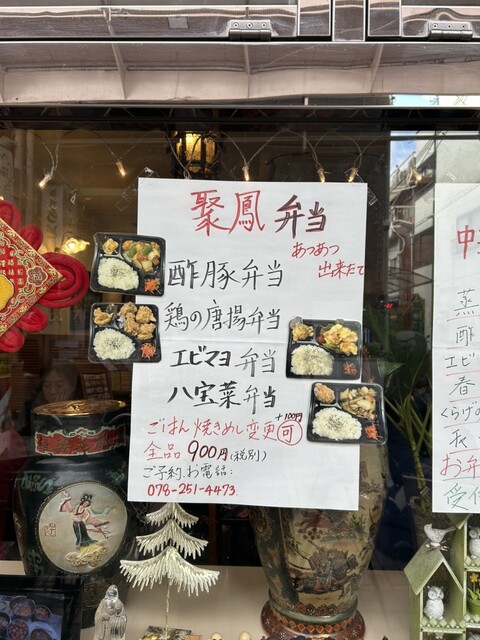 聚鳳 弁当
あつあつ
出来たて
酢豚弁当
鶏の唐揚弁当
エビマヨ弁当
八宝菜弁当
+100円
ごはん焼きめし変更可
全品 900円(税別)
ご予約.お電話:
078-251-4473
中
蒸
酢
エビ
春
くらげの
お弁
受付